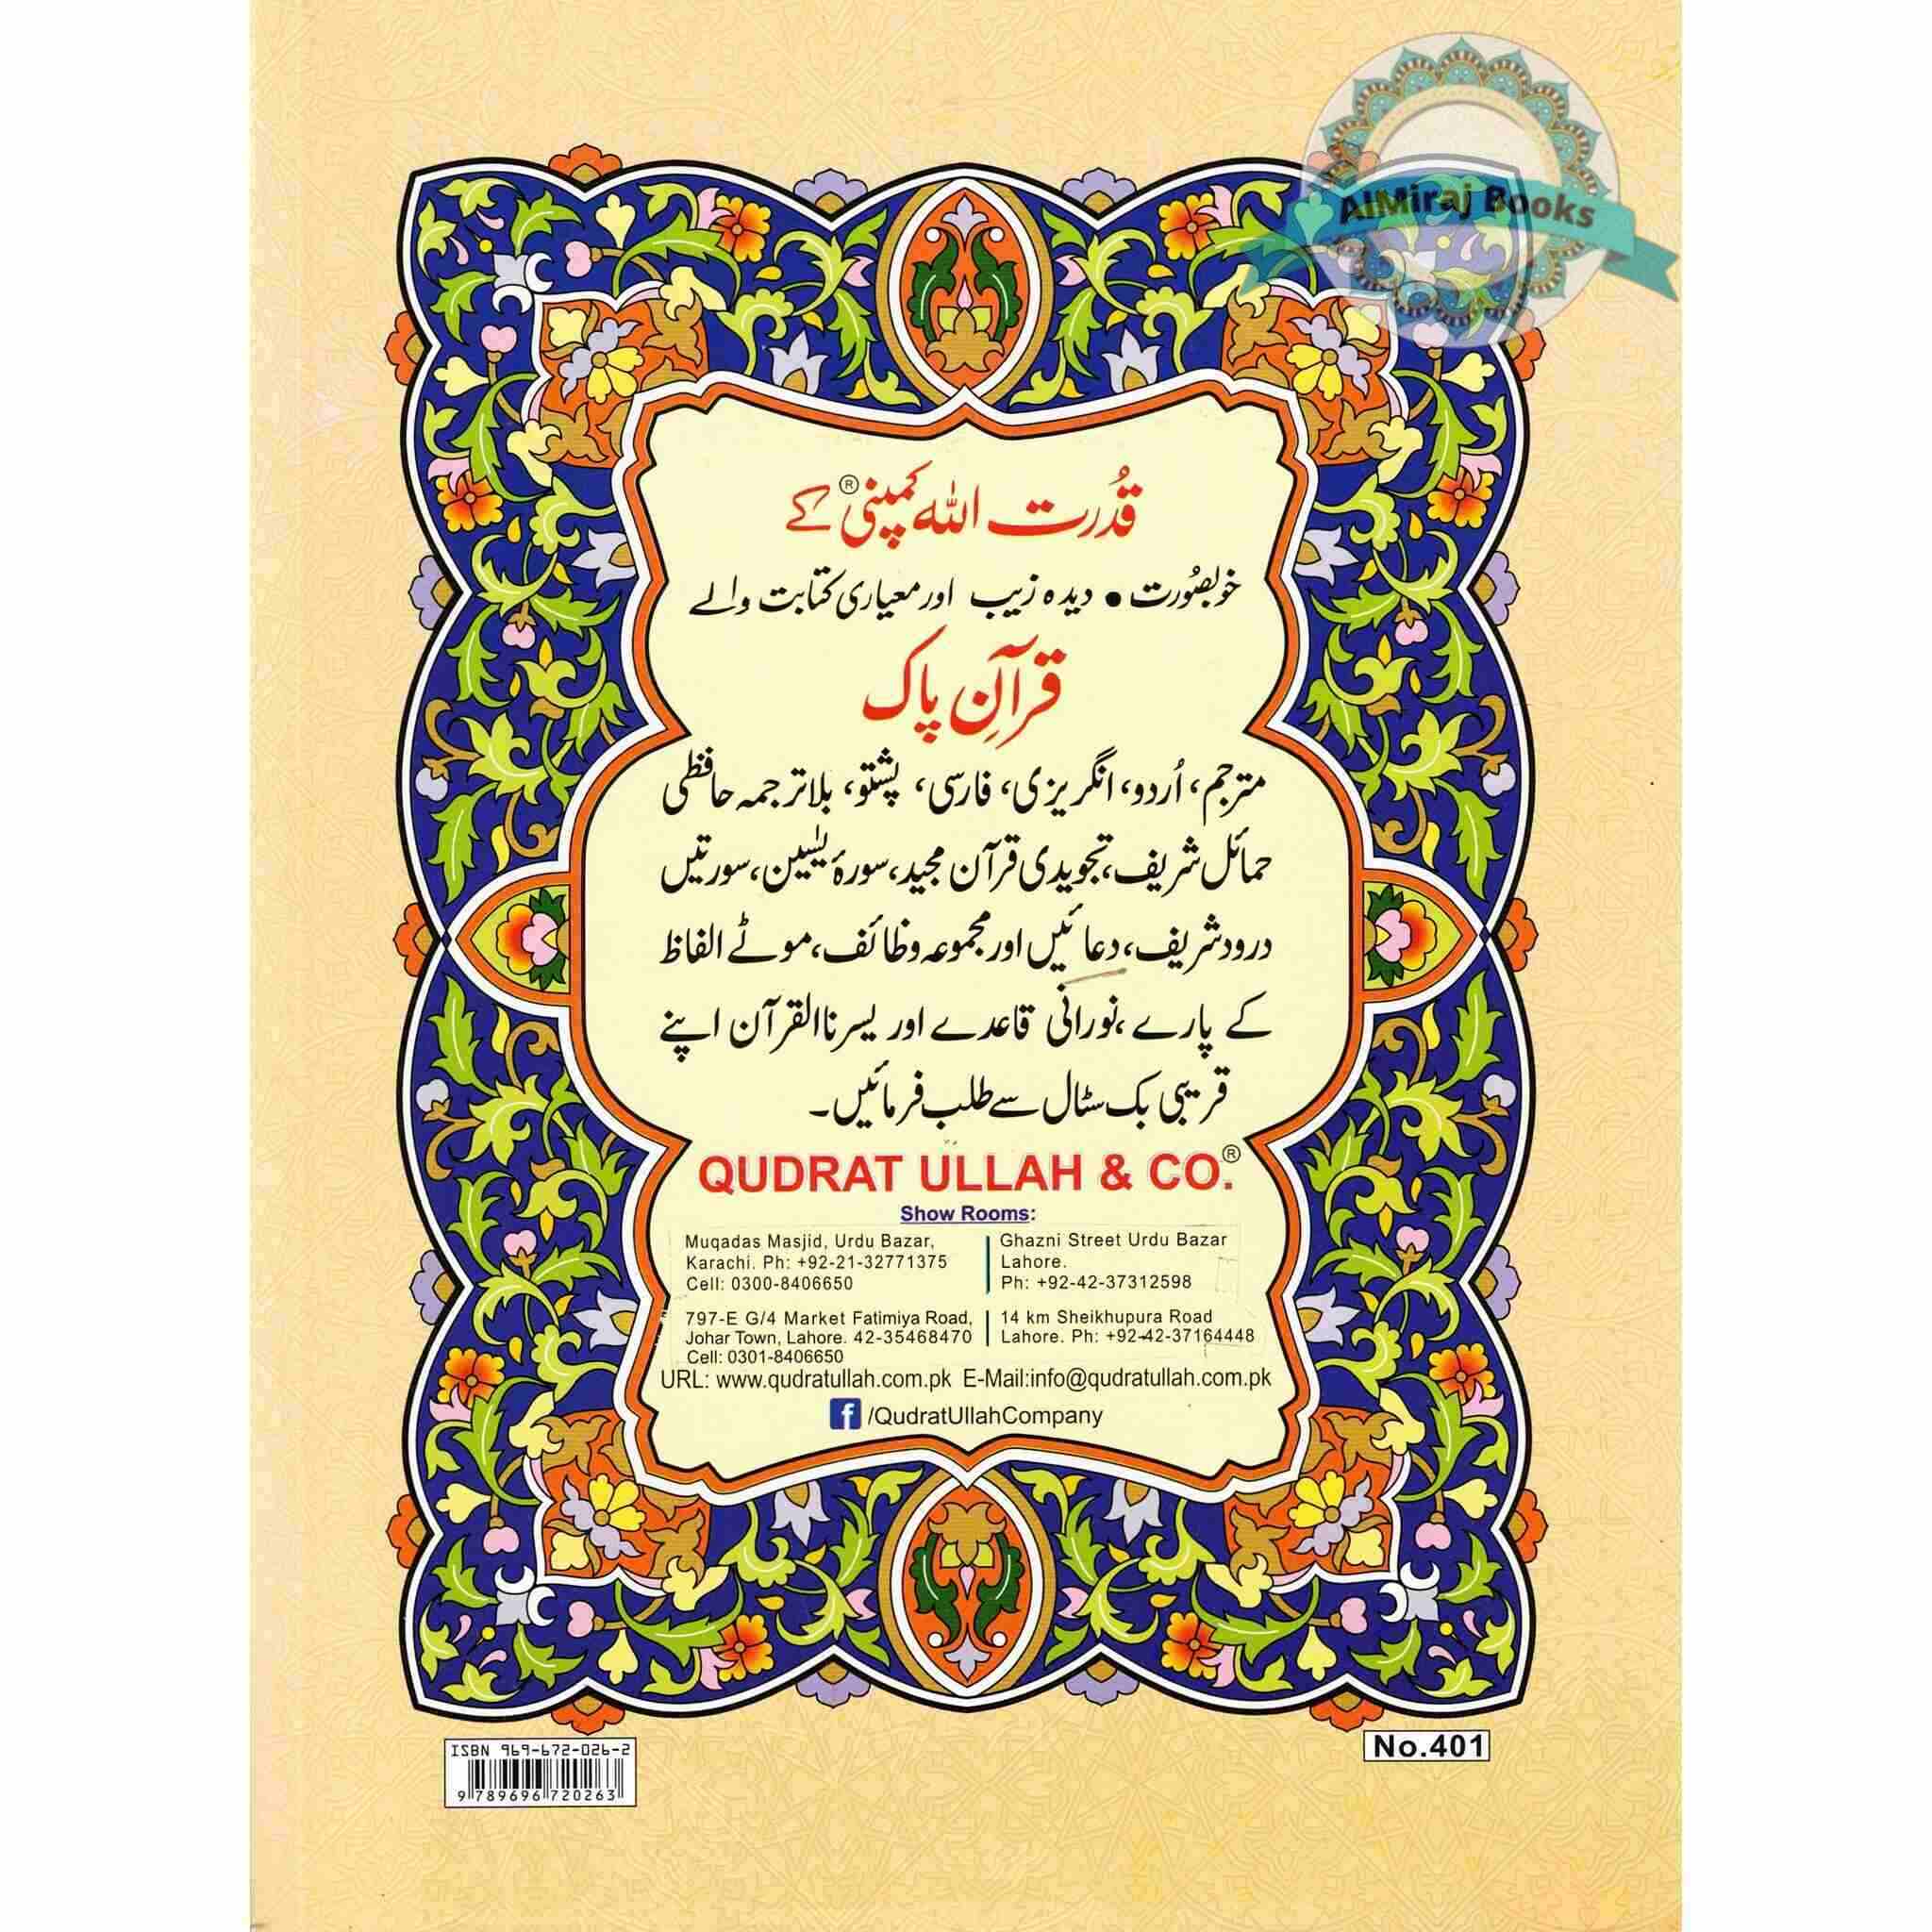 AlMiraj Books
قُدرت اللہ کمپنی® کے
خوبصُورت • دیدہ زیب اور معیاری کتابت والے
قرآنِ پاک
مترجم، اُردو، انگریزی، فارسی، پشتو، بلاترجمہ حافظی
حمائل شریف، تجویدی قرآن مجید، سورۂ یٰسین، سورتیں
درود شریف، دعائیں اور مجموعہ وظائف، موٹے الفاظ
کے پارے، نورانی قاعدے اور یسرنا القرآن اپنے
قریبی بک سٹال سے طلب فرمائیں۔
QUDRAT ULLAH & CO.®
Show Rooms:
Muqadas Masjid, Urdu Bazar,
Karachi. Ph: +92-21-32771375
Cell: 0300-8406650
Ghazni Street Urdu Bazar
Lahore.
Ph: +92-42-37312598
797-E G/4 Market Fatimiya Road,
Johar Town, Lahore. 42-35468470
Cell: 0301-8406650
14 km Sheikhupura Road
Lahore. Ph: +92-42-37164448
URL: www.qudratullah.com.pk E-Mail:info@qudratullah.com.pk
f /QudratUllahCompany
ISBN 969-672-026-2
9 789696 720263
No.401